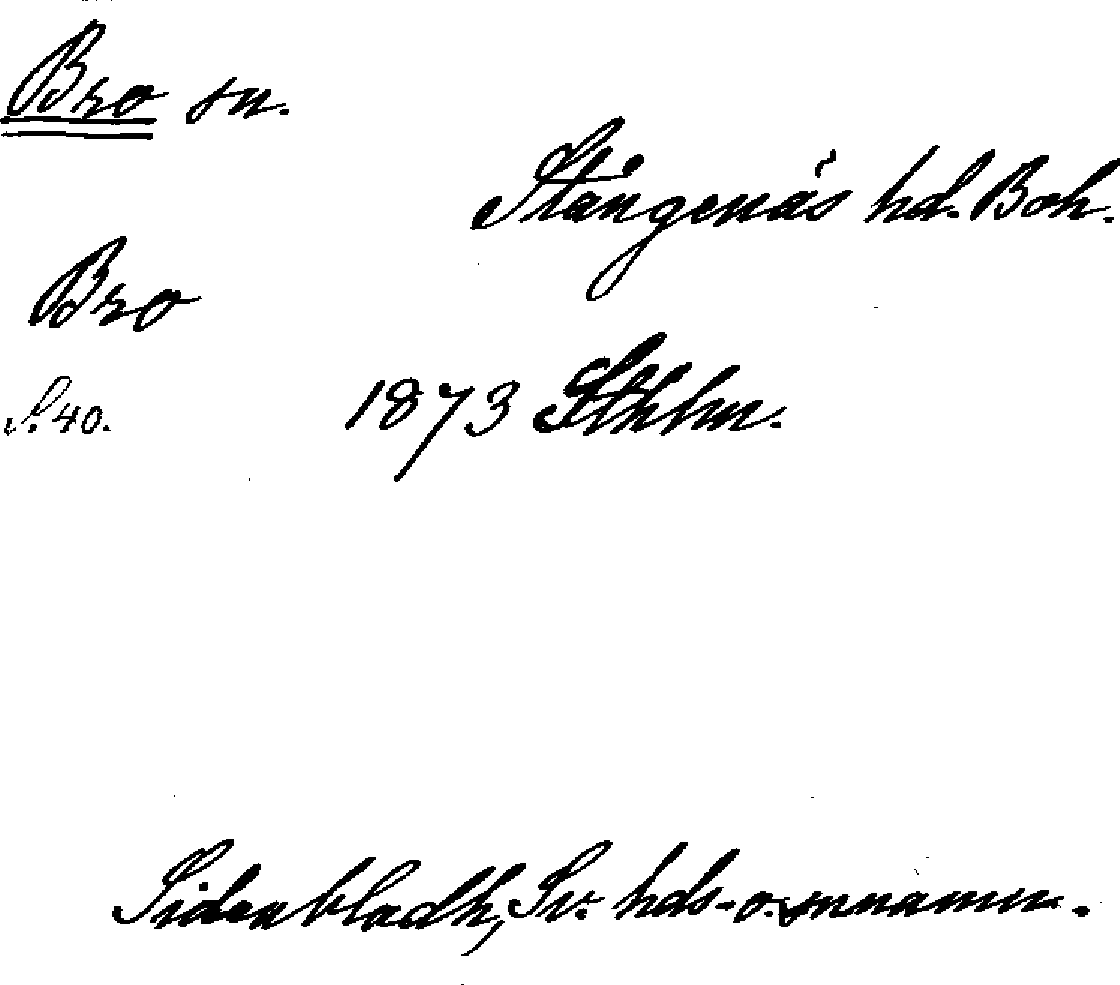 Bro sn.
Stångenäs hd. Boh.
Bro
S. 40. 1873 Sthlm.
Sidenbladh, Sv. hds- o. snnamn.